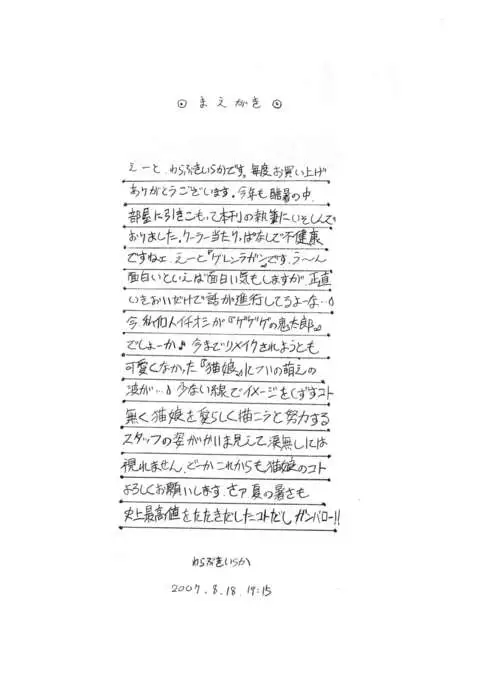 ◎ まえがき ◎
えーと、わらぶきいらかです。毎度お買い上げ
ありがとうございます。今年も酷暑の中、
部屋に引きこもって本刊の執筆にいそしんで
おりました。クーラー当たりっぱなしで不健康
ですねェ。えーと『グレンラガン』です。う〜ん
面白いといえば面白い気もしますが、正直
いきおいだけで話が進行してるよーな…。
今、私個人イチオシが『ゲゲゲの鬼太郎』
でしょーか♪ 今までリメイクされようとも
可愛くなかった『猫娘』についの萌えの
波が…。少ない線でイメージをくずすコト
無く猫娘を愛らしく描こうと努力する
スタッフの姿がかいま見えて、涙無しには
視れません。どーかこれからも、猫娘のコト
よろしくお願いします。さァ夏の暑さも
史上最高値をたたきだしたコトだし、ガンバロー!!
わらぶきいらか
2007.8.18.19:15